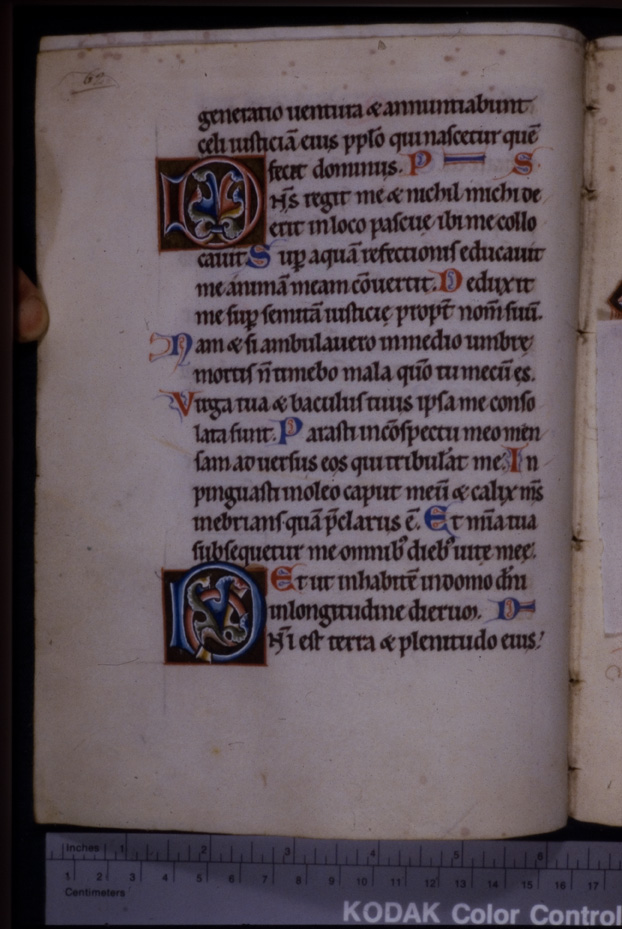 62
generatio uentura & annuntiabunt
celi iusticiā eius pplo qui nascetur quē
fecit dominus. P S
DN̄S regit me & nichil michi de
erit in loco pascuę ibi me collo
cauit Sup aquā refectionis educauit
me animā meam cōuertit. Deduxit
me sup semitā iusticię propt nom̄ suū.
Nam & si ambulauero in medio umbrę
mortis n̄ timebo mala qūo tu mecū es.
Virga tua & baculus tuus ipsa me conso
lata sunt. Parasti in cōspectu meo men
sam aduersus eos qui tribulāt me. In
pinguasti in oleo caput meū & calix m̄s
inebrians quā p̄clarus ē. Et m̄ia tua
subsequetur me omnib; dieb; uitę meę.
Et ut inhabitē in domo dn̄i
in longitudine dierum. D
DN̄I est terra & plenitudo eius:
Inches 1 2 3 4 5 6
1 2 3 4 5 6 7 8 9 10 11 12 13 14 15 16 17
Centimeters
KODAK Color Control